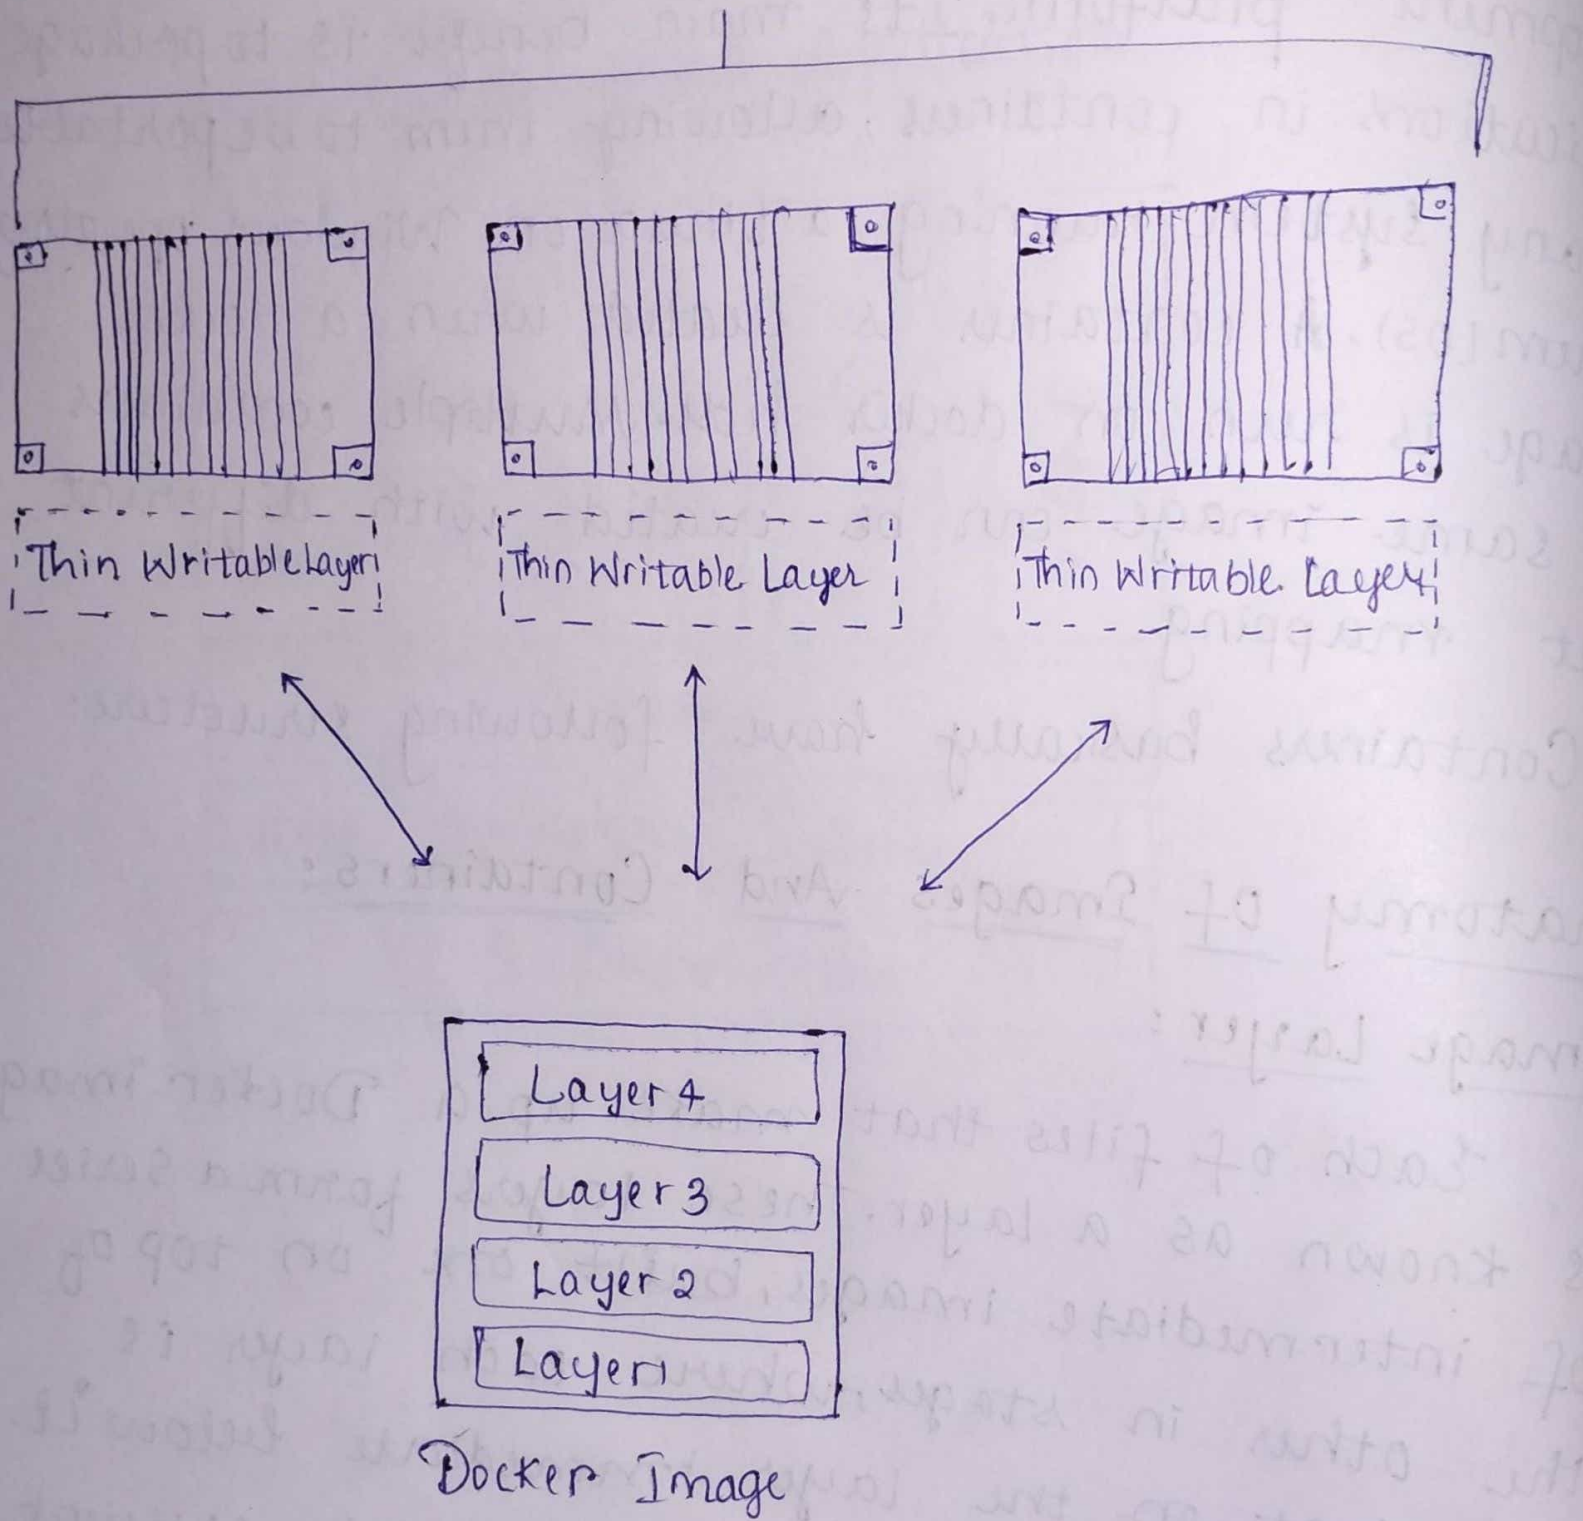 Thin Writable Layer
Thin Writable Layer
Thin Writable Layer
Layer 4
Layer 3
Layer 2
Layer 1
Docker Image